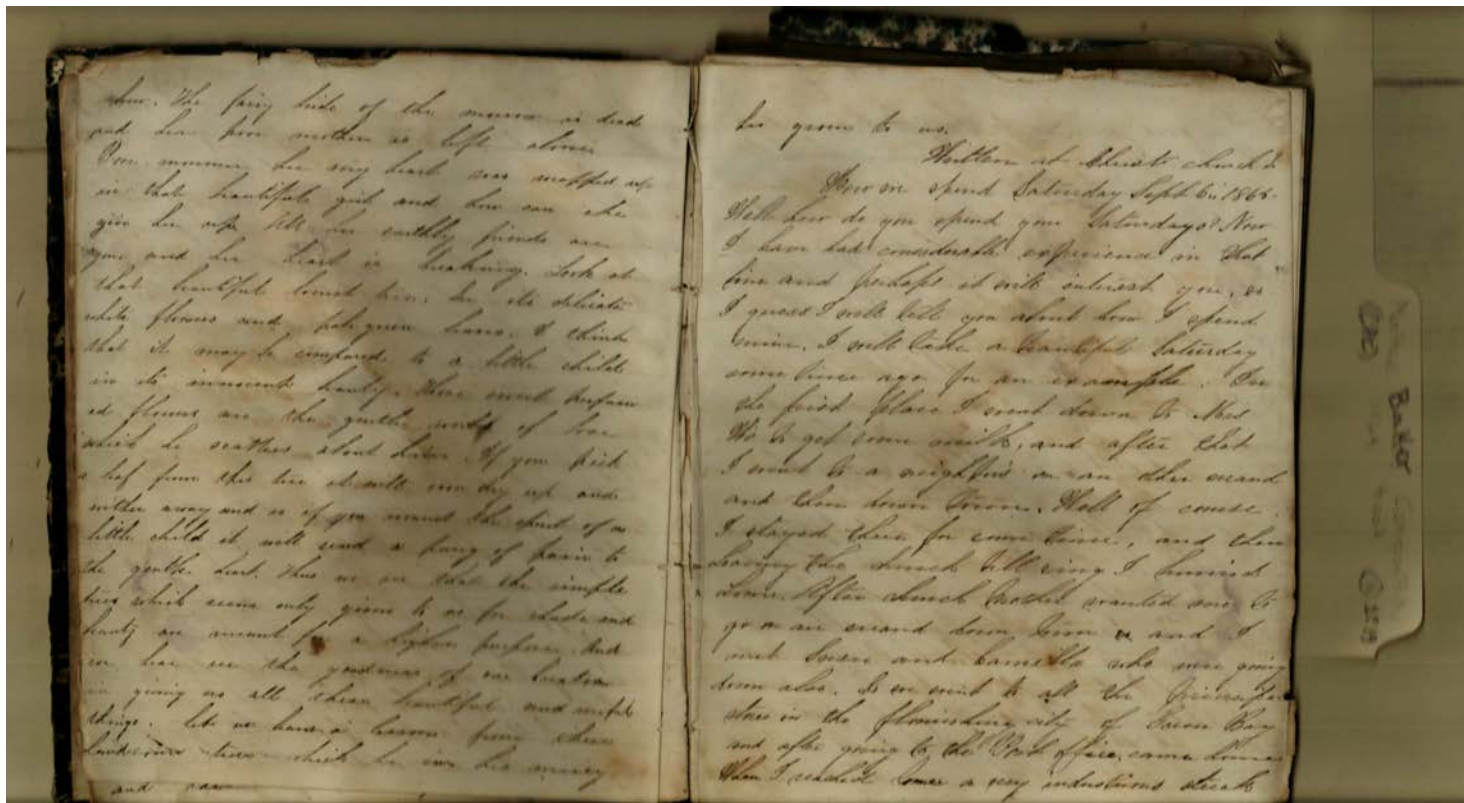 him. The fairy bride of the morning is dead
and her poor mother is left alone.
Poor mourner her very heart was wrapped up
in that beautiful girl and how can she
give her up. All her earthly friends are
gone and her heart is breaking. Look at
that beautiful locust tree, see its delicate
white flowers and pale green leaves. I think
that it may be compared to a little child
in its innocent beauty. These sweet perfum
ed flowers are the gentle words of love
which he scatters about him. If you pick
a leaf from this tree it will soon dry up and
wither away and so if you wound the spirit of a
little child it will send a pang of pain to
the gentle heart. Thus we see that the simple
trees which seem only given to us for shade and
beauty are meant for a higher purpose. And
we here see the goodness of our Creator
in giving us all these beautiful and useful
things. Let us have a lesson from these
handsome trees which he in his mercy
and
has given to us.
Written at church
How we spend Saturday Sept. 6. 1865.
Well how do you spend your Saturdays? Now
I have had considerable experience in that
line and perhaps it will interest you, so
I guess I will tell you about how I spend
mine. I will take a beautiful Saturday
some time ago for an example. In
the first place I went down to Mrs
to get some milk, and after that
I went to a neighbor's on an other errand
and then down town. Well of course
I stayed there for some time, and then
hearing the church bell ring I hurried
home. After church Mother wanted me to
go on an errand down town and I
met and who were going
down also. So we went to all the principle
stores in the flourishing city of Bay
and after going to the Post office, came home
When I reached home a very industrious streak